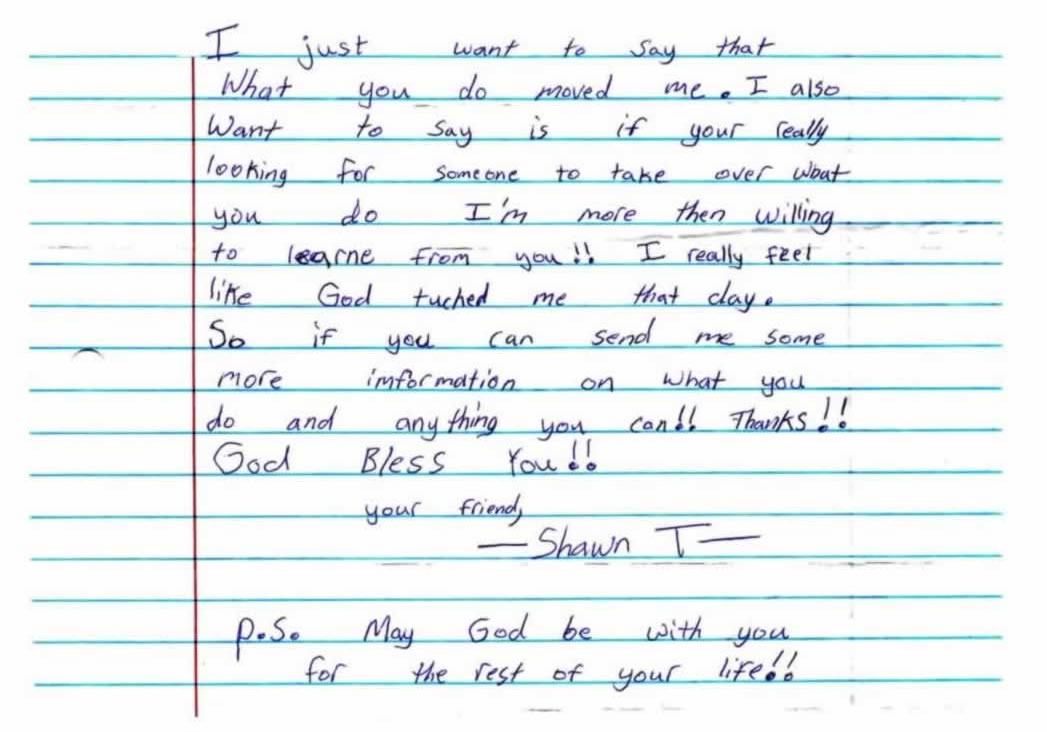 I just want to say that
What you do moved me. I also
Want to say is if your really
looking for someone to take over what
you do I'm more then willing
to learne from you!! I really feel
like God tuched me that day.
So if you can send me some
more imformation on what you
do and anything you can!! Thanks!!
God Bless You!!
your friend,
—Shawn T—
P.S. May God be with you
for the rest of your life!!